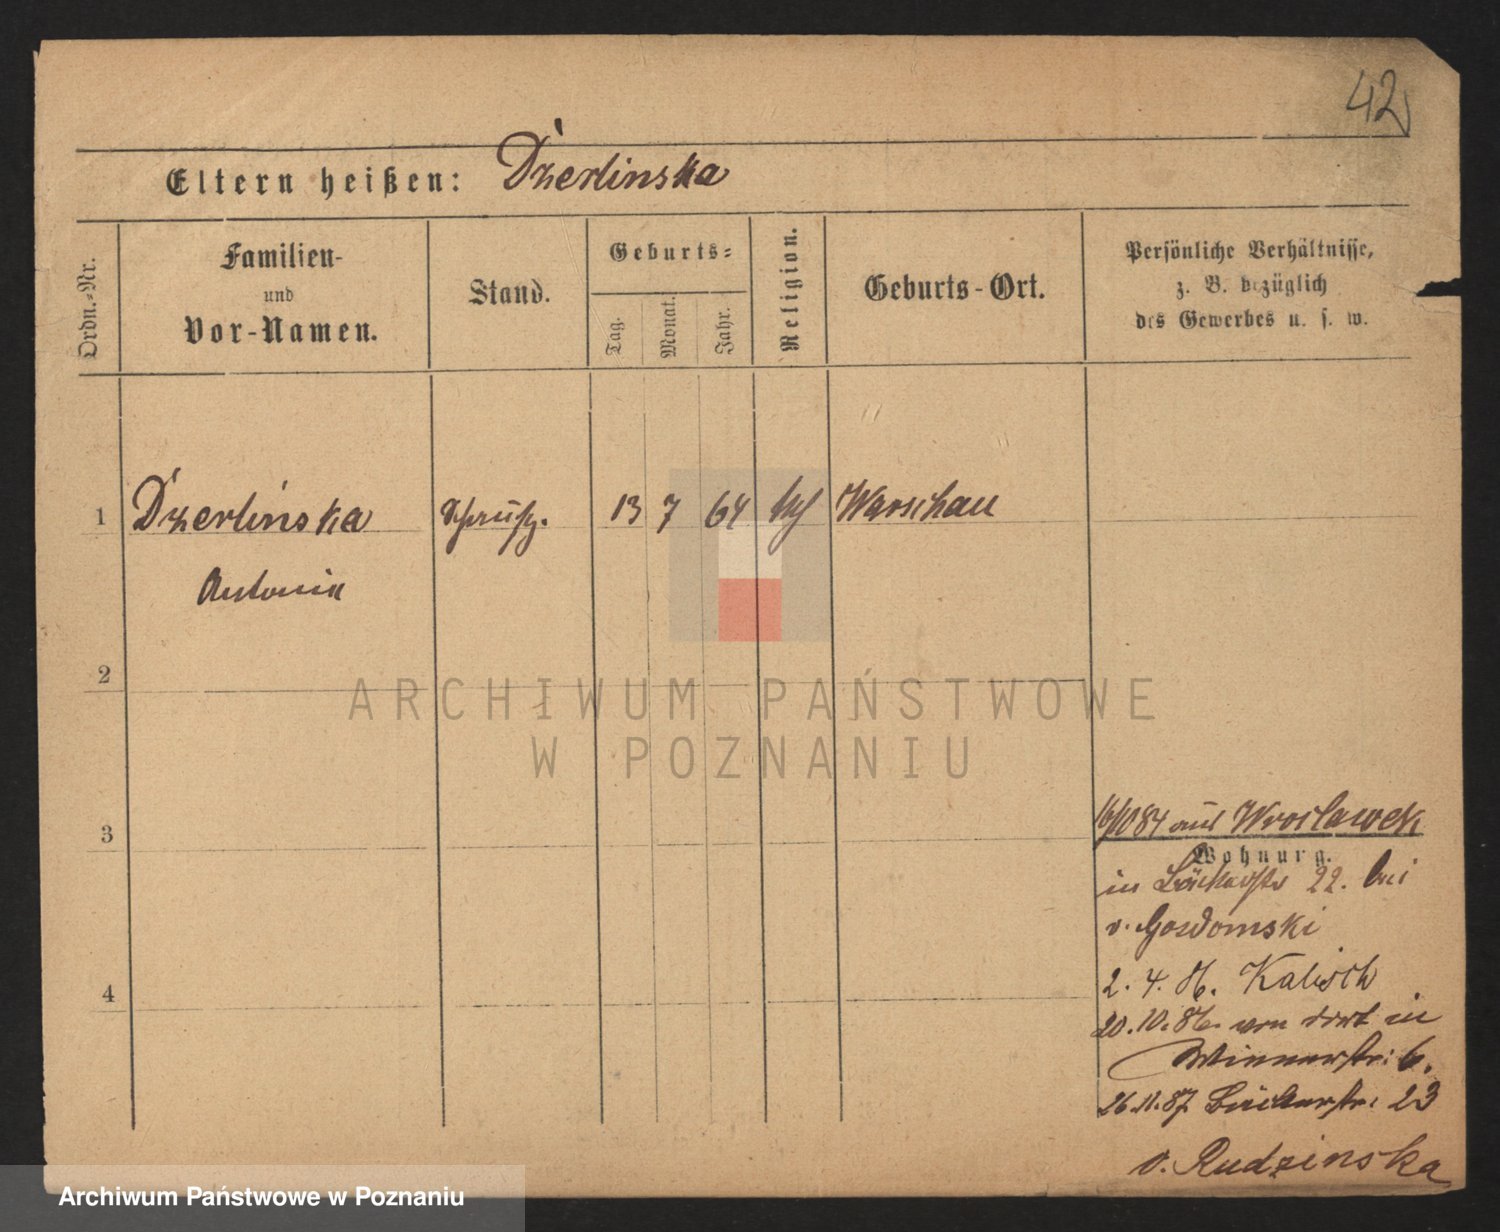 42
Eltern heißen: Dzerlinska
Ordn.-Nr.
Familien-
und
Vor-Namen.
Stand.
Geburts-
Tag.
Monat.
Jahr.
Religion.
Geburts-Ort.
Persönliche Verhältnisse,
z. B. bezüglich
des Gewerbes u. s. w.
1 Dzerlinska 13 7 64 Warschau
Antonia
2
ARCHIWUM PAŃSTWOWE
W POZNANIU
3
16/10 84 aus Wroclawek
Wohnung.
in Bäckerstr 22. bei
v. Gosdomski
4
2. 4. 86. Kalisch
20. 10. 86. von dort in
Wienerstr: 6.
26. 11. 87. Bäckerstr: 23
v. Rudzinska
Archiwum Państwowe w Poznaniu